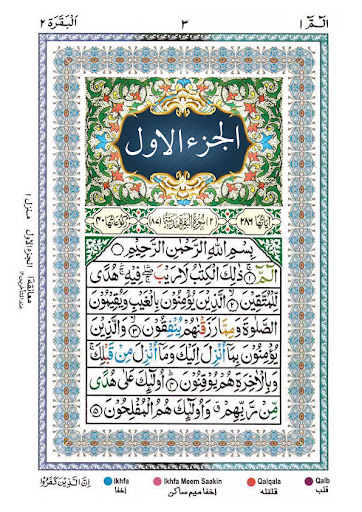 الٓمّٓ ١
٣
اَلْبَقَرَة ٢
الجزء الاول
اٰيَاتُهَا ٢٨٦
٢ سُوْرَةُ الْبَقَرَةِ مَدَنِيَّةٌ ٨٧
رُكُوْعَاتُهَا ٤٠
بِسْمِ اللّٰهِ الرَّحْمٰنِ الرَّحِيْمِ
الٓمّٓ ۚ ﴿۱﴾ ذٰلِكَ الْكِتٰبُ لَا رَيْبَ ۛ فِيْهِ ۛ هُدًى
لِّلْمُتَّقِيْنَ ﴿۲﴾ الَّذِيْنَ يُؤْمِنُوْنَ بِالْغَيْبِ وَيُقِيْمُوْنَ
الصَّلٰوةَ وَمِمَّا رَزَقْنٰهُمْ يُنْفِقُوْنَ ﴿۳﴾ وَالَّذِيْنَ
يُؤْمِنُوْنَ بِمَآ اُنْزِلَ اِلَيْكَ وَمَآ اُنْزِلَ مِنْ قَبْلِكَ ۚ
وَبِالْاٰخِرَةِ هُمْ يُوْقِنُوْنَ ﴿۴﴾ اُولٰٓئِكَ عَلٰى هُدًى
مِّنْ رَّبِّهِمْ ۗ وَاُولٰٓئِكَ هُمُ الْمُفْلِحُوْنَ ﴿۵﴾
معانقة ١ الجزء الاول منزل ١
اِنَّ الَّذِيْنَ كَفَرُوْا
Ikhfa
اخفا
Ikhfa Meem Saakin
اخفا میم ساکن
Qalqala
قلقله
Qalb
قلب